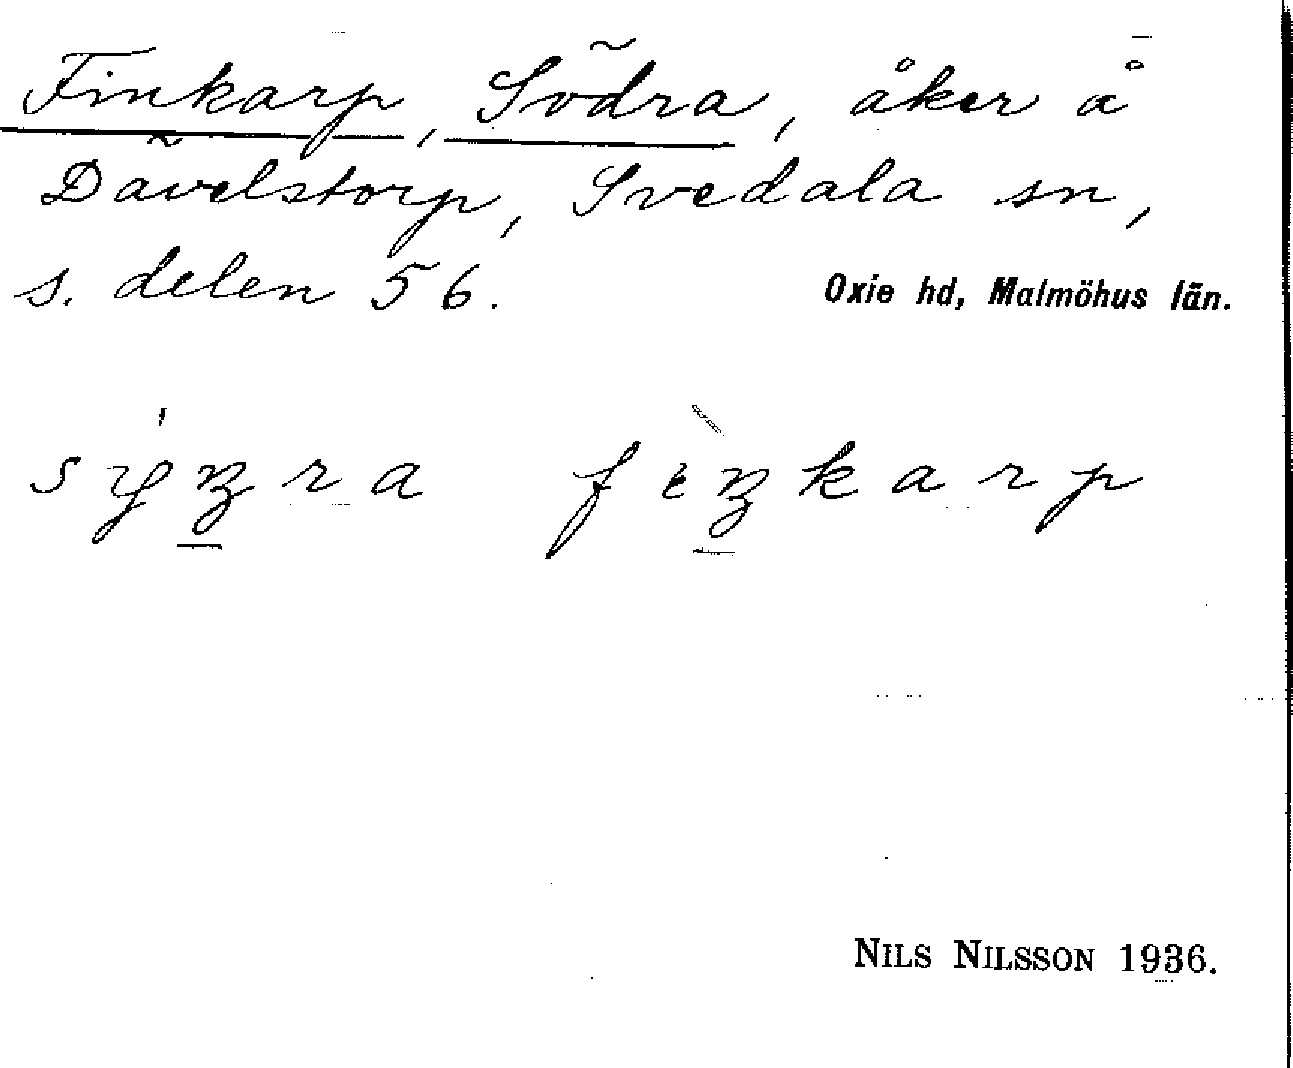 Finkarp, Södra, åker å
Dävelstorp, Svedala sn,
s. delen 56.
Oxie hd, Malmöhus län.
NILS NILSSON 1936.